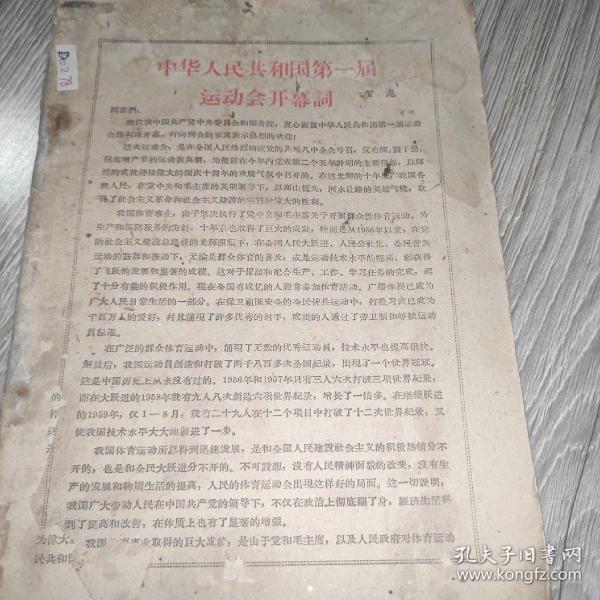 D02 78
中华人民共和国第一届
运动会开幕詞
贺龙
同志們：
我代表中国共产党中央委员会和国务院，衷心祝贺中华人民共和国第一届运动
会胜利地开幕，并向到会的来宾表示热烈的欢迎！
这次运动会，是在全国人民热烈响应党的八届八中全会号召，反右倾，鼓干劲，
掀起增产节約运动新高潮，为提前在今年内完成第二个五年計划的主要指标，以輝
煌的成就迎接偉大的国庆十周年的欢騰气氛中召开的。在这光輝的十年里，我国各
族人民，在党中央和毛主席的英明领导下，以高山低头，河水让路的英雄气概，取
得了社会主义革命和社会主义建設的
偉大的胜利。
我国体育事业，由于坚决执行了党中央和毛主席关于开展群众性体育运动，为
生产和国防服务的方針，十年来也取得了巨大的成就。特别是从1958年以来，在党
的社会主义建設总路綫的光輝照耀下，在全国人民大跃进、人民公社化、全民皆兵
运动的鼓舞和推动下，无論是群众体育的普及，或是运动技术水平的提高，都获得
了飞跃的发展和显著的成績。这对于保証和配合生产、工作、学习任务的完成，起
了十分有益的积极作用。现在全国有成亿的人經常参加体育活动。广播体操已成为
广大人民日常生活的一部分。在保卫祖国安全的全民皆兵运动中，打枪习武已成为
千百万人的爱好，并且涌现了許多优秀的射手，成批的人通过了劳卫制和等級运动
員标准。
在广泛的群众体育运动中，涌现了无数的优秀运动員，技术水平也提高很快。
解放后，我国运动員創造和打破了两千八百多次全国紀录，出现了一个世界冠軍。
这是中国历史上从未沒有过的。1956年和1957年只有三人六次打破三項世界紀录，
而在大跃进的1958年就有九人八次創造六項世界紀录，增长了一倍多。在继續跃进
的1959年，仅1—8月，就有二十九人在十二个項目中打破了十二次世界紀录，又
使我国技术水平大大地前进了一步。
我国体育运动所以得到迅速发展，是和全国人民建設社会主义的积极热情分不
开的，也是和全民大跃进分不开的。不可設想，沒有人民精神面貌的改变，沒有生
产的发展和物质生活的提高，人民的体育运动会出现这样好的局面。这一切說明，
我国广大劳动人民在中国共产党的领导下，不仅在政治上彻底翻了身，經济生活得
到了提高和改善，在体质上也有了显著的增强。
我国体育事业取得的巨大成就，是由于党和毛主席，以及人民政府对体育运动
的
样
这
为偉大
民共和
孔夫子旧书网
www.kongfz.com